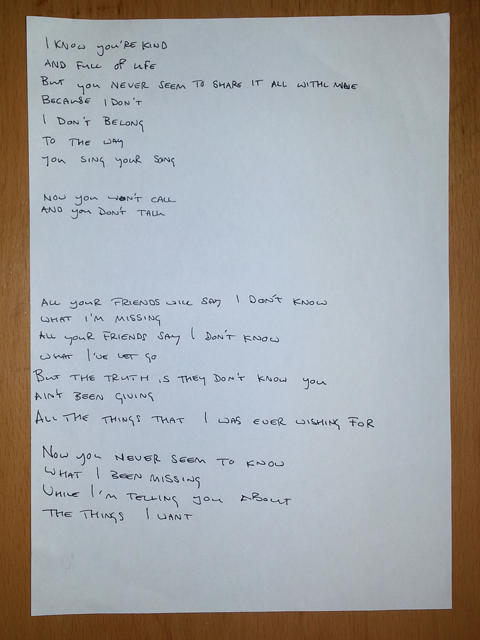 I KNOW YOU'RE KIND
AND FULL OF LIFE
BUT YOU NEVER SEEM TO SHARE IT ALL WITH MINE
BECAUSE I DON'T
I DON'T BELONG
TO THE WAY
YOU SING YOUR SONG
NOW YOU WON'T CALL
AND YOU DON'T TALK
ALL YOUR FRIENDS WILL SAY I DON'T KNOW
WHAT I'M MISSING
ALL YOUR FRIENDS SAY I DON'T KNOW
WHAT I'VE LET GO
BUT THE TRUTH IS THEY DON'T KNOW YOU
AIN'T BEEN GIVING
ALL THE THINGS THAT I WAS EVER WISHING FOR
NOW YOU NEVER SEEM TO KNOW
WHAT I BEEN MISSING
WHILE I'M TELLING YOU ABOUT
THE THINGS I WANT